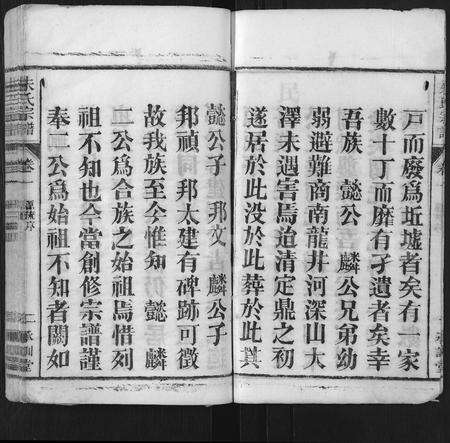 戸而廢為坵墟者矣有一家
數十丁而靡有孑遺者矣幸
吾族 懿公 麟公兄弟幼
弱避難商南龍井河深山大
澤未遇害焉迨清定鼎之初
遂居於此没於此葬於此其
懿公子 邦文 麟公子
邦禎 邦太建有碑跡可徴
故我族至今惟知 懿 麟
二公為合族之始祖焉惜列
祖不知也今當創修宗譜謹
奉二公為始祖不知者闕如
朱氏宗譜
卷